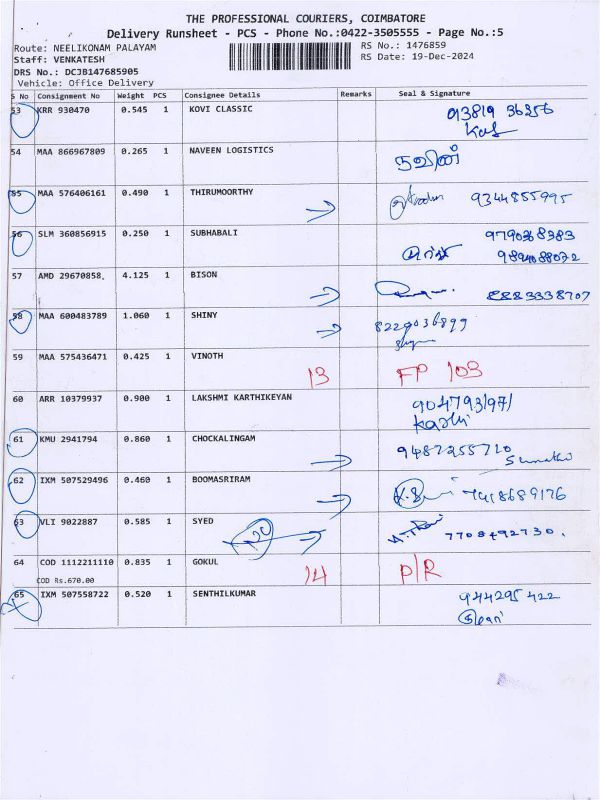 THE PROFESSIONAL COURIERS, COIMBATORE
Delivery Runsheet - PCS - Phone No.:0422-3505555 - Page No.:5
Route: NEELIKONAM PALAYAM
RS No.: 1476859
Staff: VENKATESH
RS Date: 19-Dec-2024
DRS No.: DCJB147685905
Vehicle: Office Delivery
S No Consignment No Weight PCS Consignee Details Remarks Seal & Signature
53 KRR 930470 0.545 1 KOVI CLASSIC
54 MAA 866967809 0.265 1 NAVEEN LOGISTICS நவீன்
55 MAA 576406161 0.490 1 THIRUMOORTHY 9344855995
56 SLM 360856915 0.250 1 SUBHABALI 9790368383
9894088032
57 AMD 29670858 4.125 1 BISON 8883338707
58 MAA 600483789 1.060 1 SHINY 8220036899
59 MAA 575436471 0.425 1 VINOTH 13 FP 103
60 ARR 10379937 0.900 1 LAKSHMI KARTHIKEYAN
61 KMU 2941794 0.860 1 CHOCKALINGAM 9487255710
62 IXM 507529496 0.460 1 BOOMASRIRAM 7418689176
63 VLI 9022887 0.585 1 SYED 7708492730.
64 COD 1112211110 0.835 1 GOKUL 14 P/R
COD Rs.670.00
65 IXM 507558722 0.520 1 SENTHILKUMAR 944295422